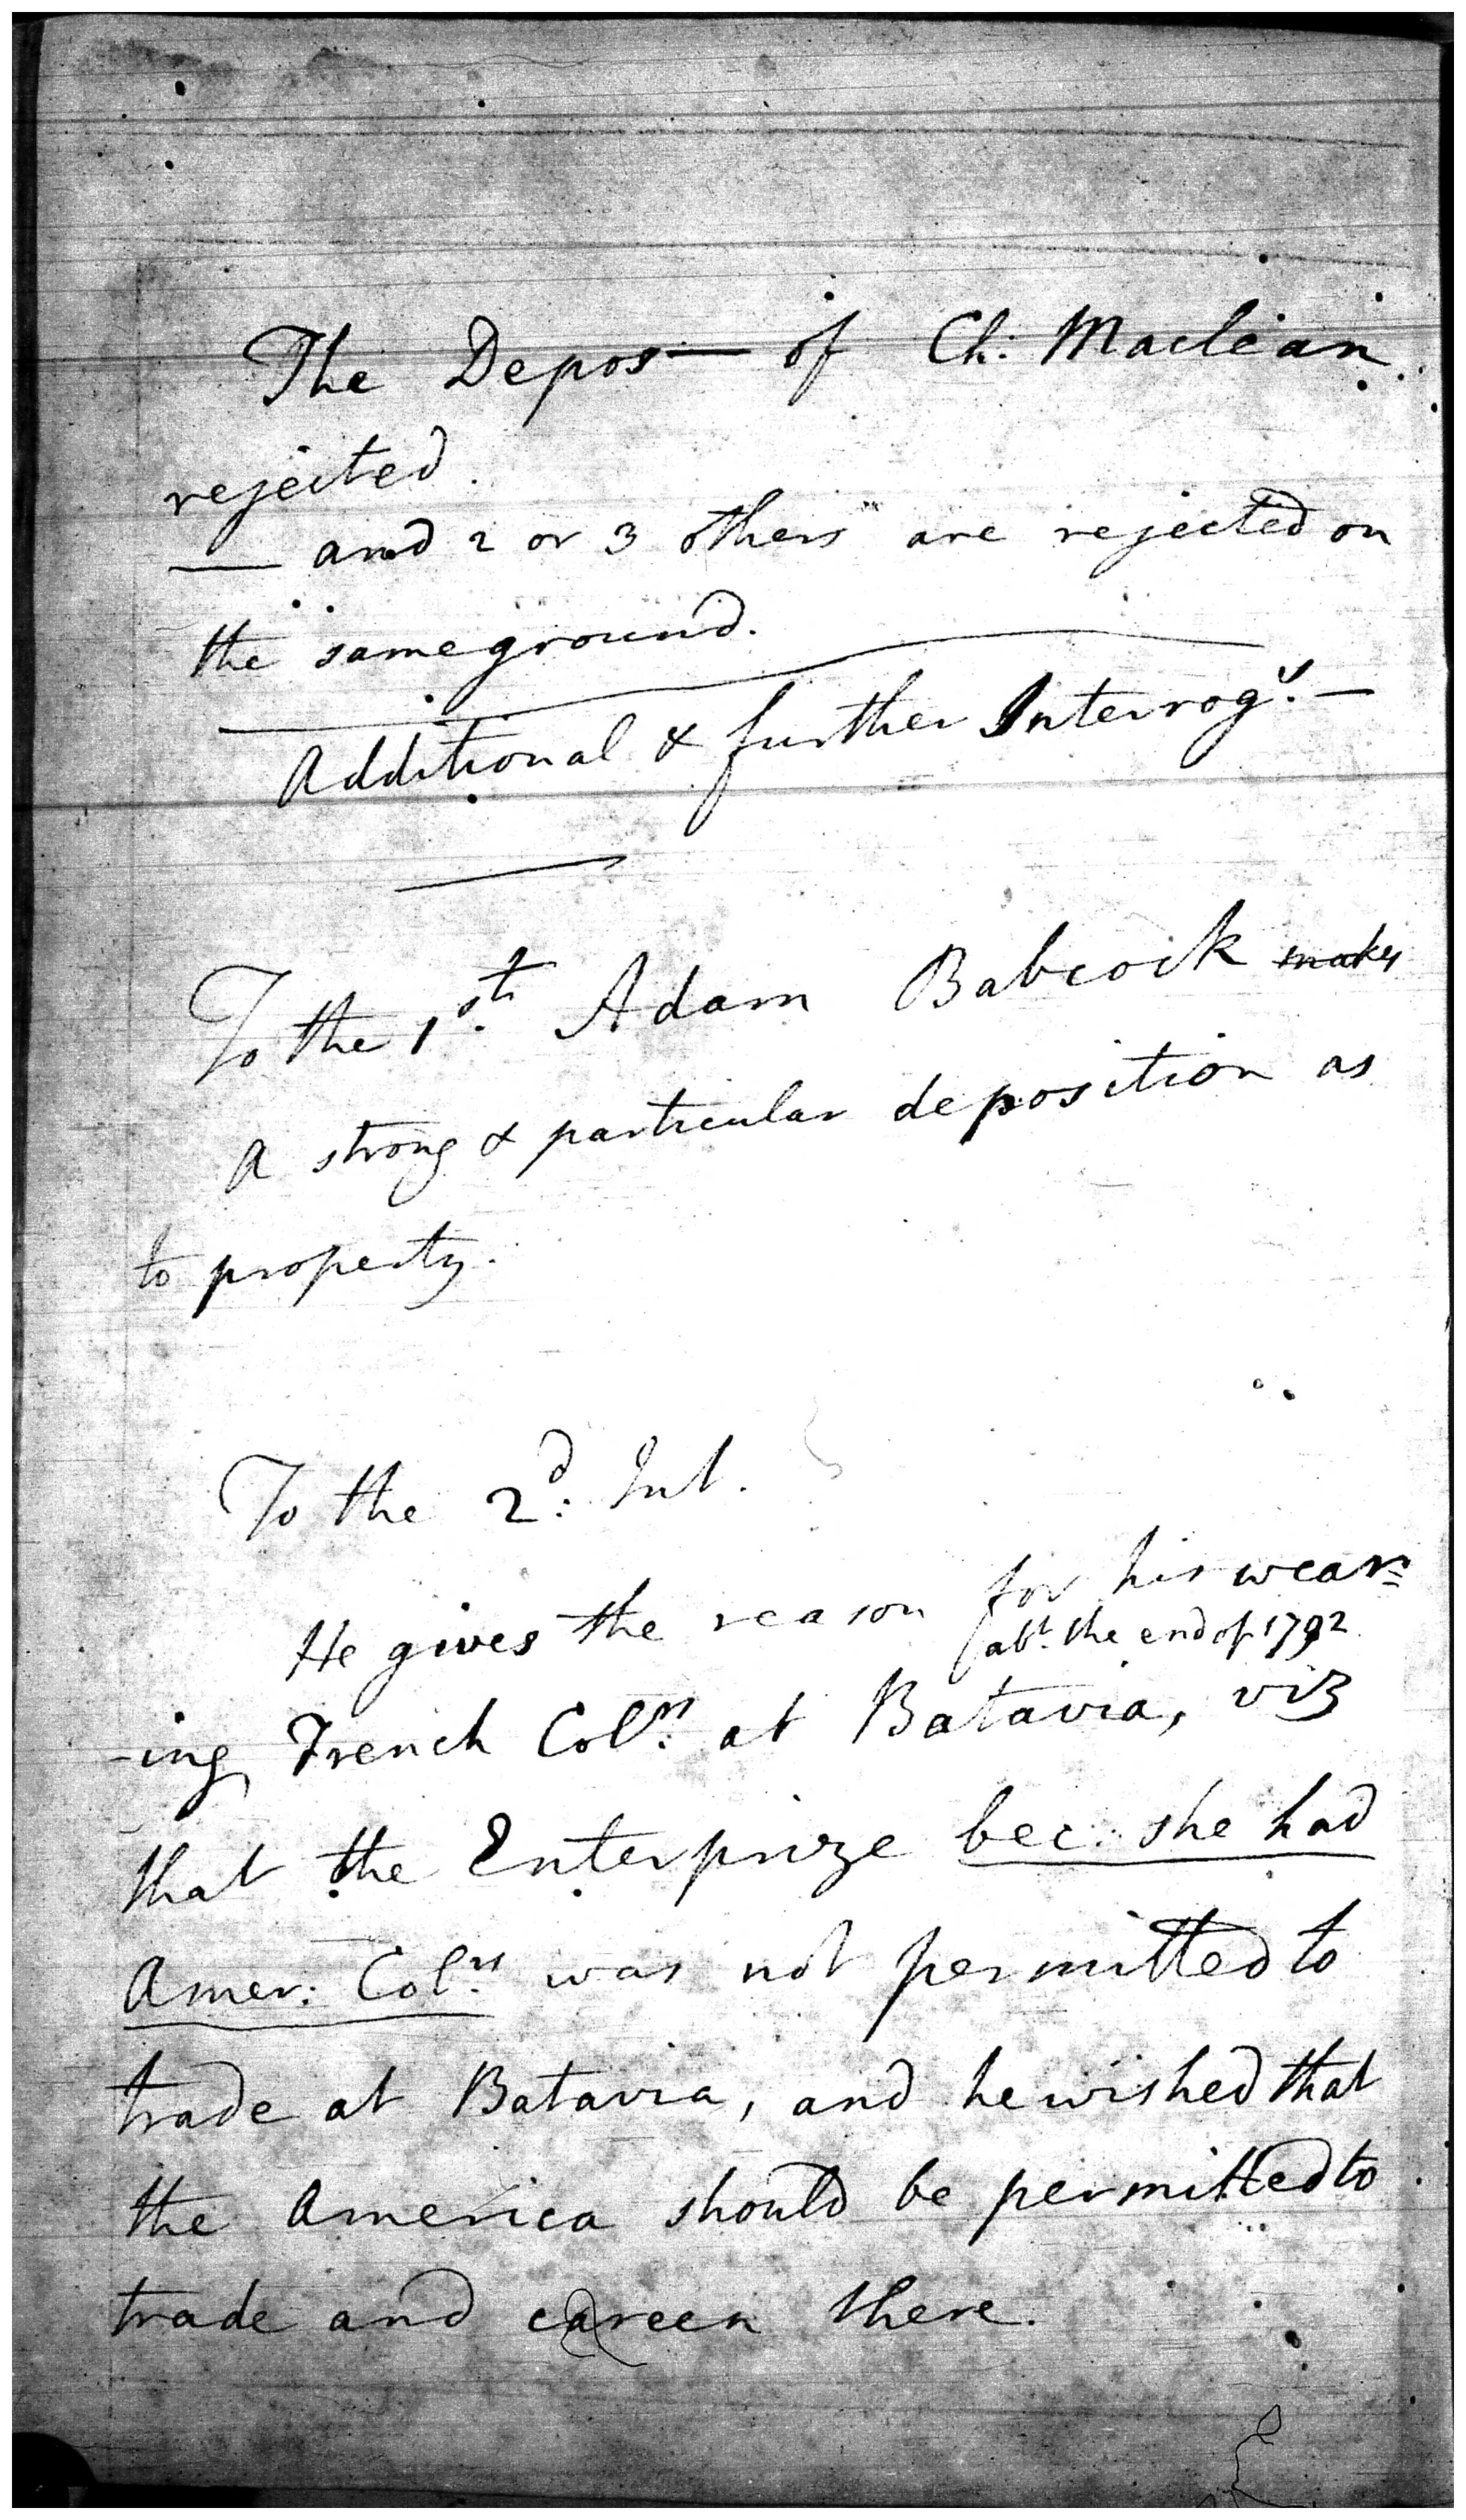 The Depos— of Ch: Maclean
rejected.
— and 2 or 3 others are rejected on
the same ground.
Additional & further Interrogs. —
To the 1st. Adam Babcock makes
a strong & particular deposition as
to property.
To the 2d: Int.
He gives the reason for his wear=
abt. the end of 1792
-ing French Coln: at Batavia, viz
that the Enterprize bec: she had
Amer: Colrs was not permitted to
trade at Batavia, and he wished that
the America should be permitted to
trade and careen there.